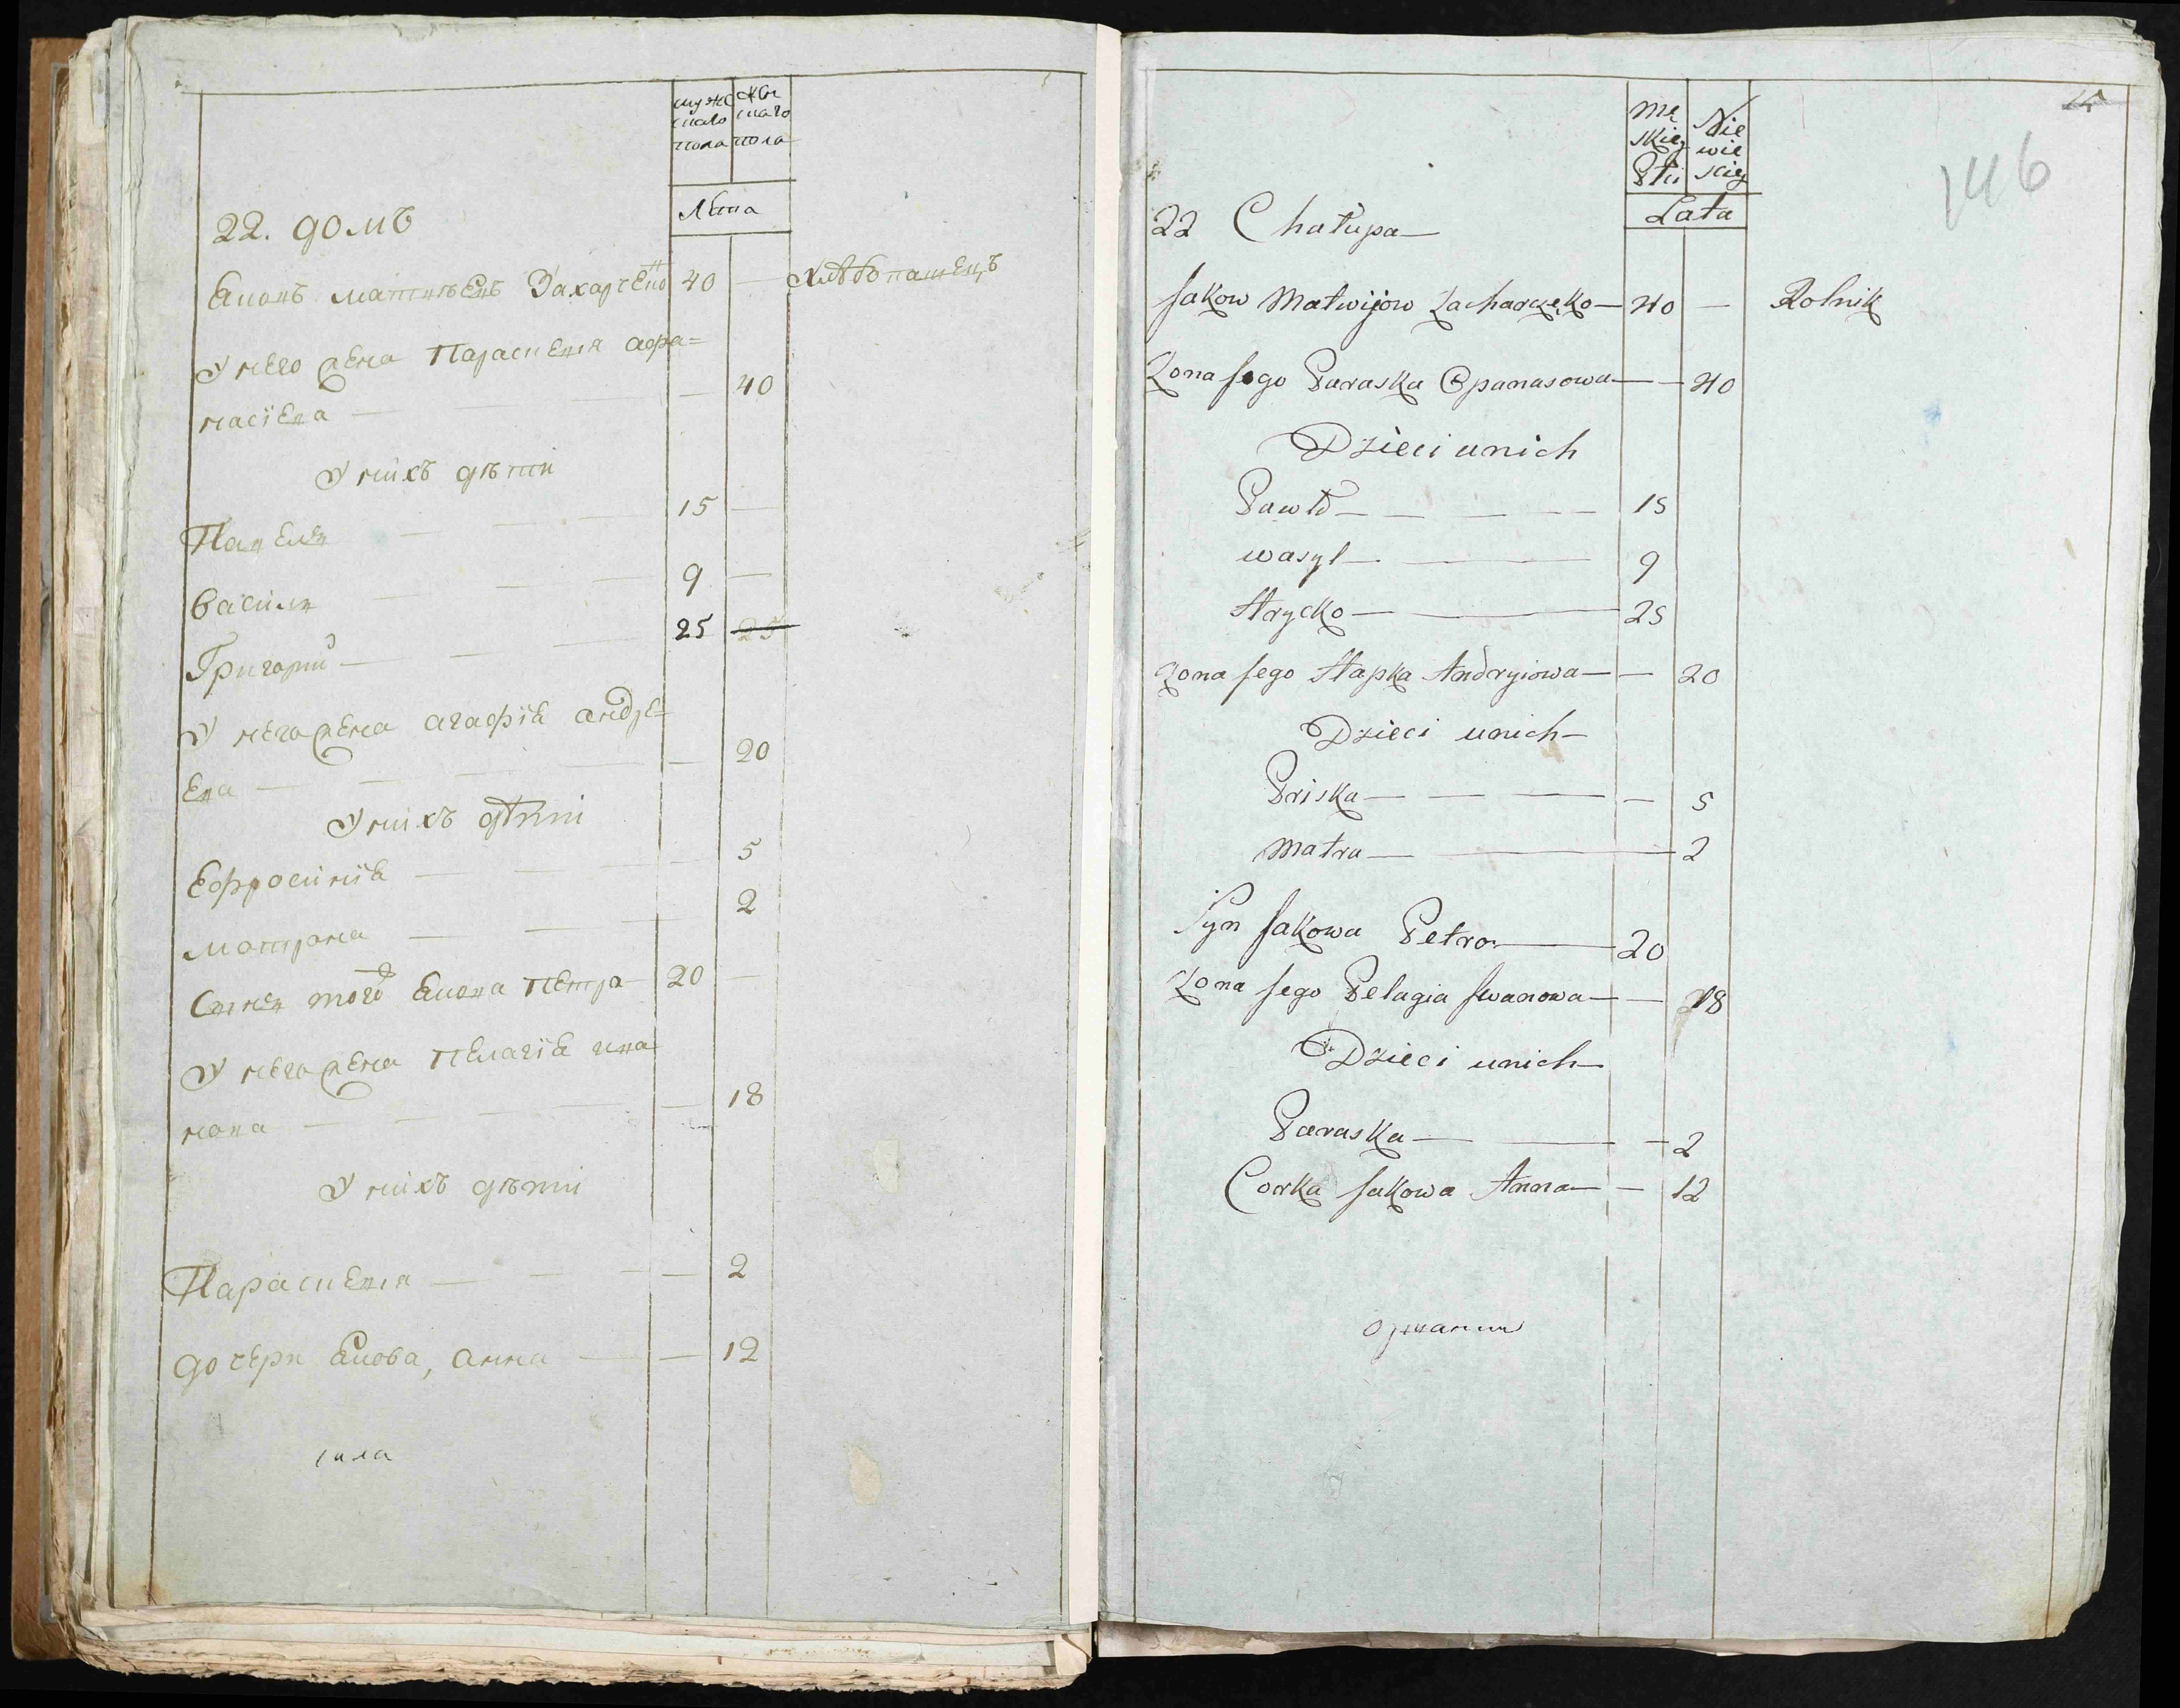 мужескаго пола
женскаго пола
Лѣта
22. домъ
Яковъ Матвѣевъ Захарченко 40 — хлѣбопашецъ
У него жена Параскевия Афа=
насіева — — 40
У нихъ дѣти
Павелъ — 15 —
Василій — 9 —
Григорий — 25 25
У него жена Агафія Андре=
ева — — 20
У нихъ дѣти
Ефросинія — 5
Матрона — 2
Сынъ того Якова Петра 20 —
У него жена Пелагія Ива=
нова — — 18
У нихъ дѣти
Параскевия — — 2
дочери Якова, Анна — — 12
села
Męskiey Płci
Niewieskiey
Lata
15
146
22 Chałupa —
Jakow Matwijow Zacharczęko — 40 — Rolnik
Zona Jego Paraska Opanasowa — — 40
Dzieci unich
Pawło — 15
wasyl — 9
Hrycko — 25
Zona Jego Hapka Andryiowa — — 20
Dzieci unich —
Priska — — 5
Matra — 2
Syn Jakowa Petro — 20
Zona Jego Pelagia Jwanowa — — 18
Dzieci unich —
Paraska — — 2
Corka Jakowa Anna — — 12